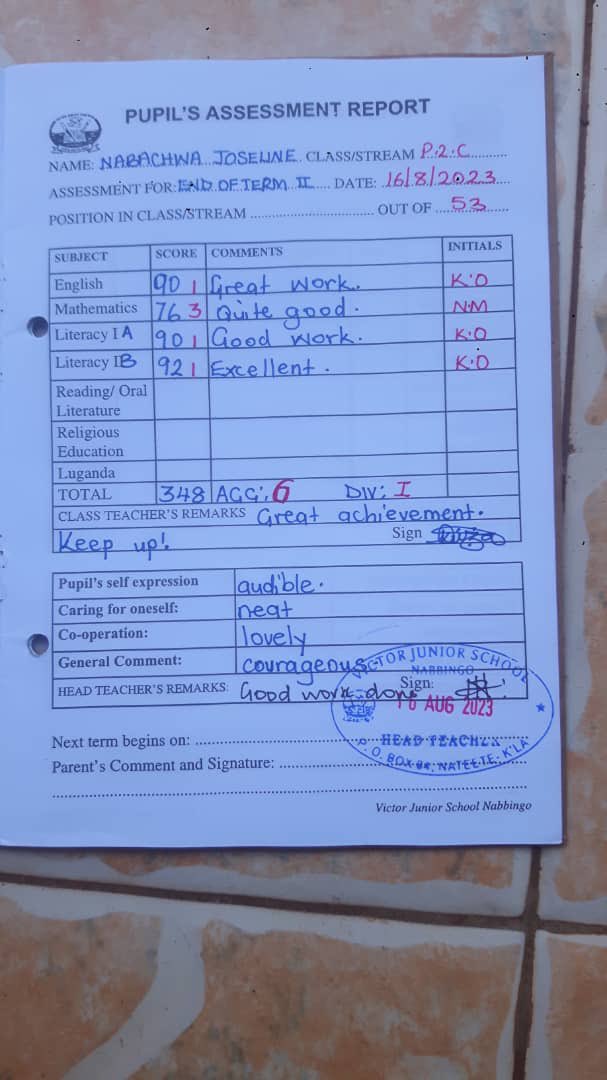 PUPIL'S ASSESSMENT REPORT
NAME: NABACHWA JOSELINE CLASS/STREAM P.2.C
ASSESSMENT FOR: END OF TERM II DATE: 16/8/2023
POSITION IN CLASS/STREAM OUT OF 53
SUBJECT SCORE COMMENTS INITIALS
English 90 1 Great work. K.O
Mathematics 76 3 Quite good. N.M
Literacy I A 90 1 Good work. K.O
Literacy I B 92 1 Excellent. K.O
Reading/ Oral
Literature
Religious
Education
Luganda
TOTAL 348 AGG: 6 DIV: I
CLASS TEACHER'S REMARKS Great achievement.
Keep up! Sign
Pupil's self expression audible.
Caring for oneself: neat
Co-operation: lovely
General Comment: courageous
HEAD TEACHER'S REMARKS: Good work done Sign:
VICTOR JUNIOR SCHOOL
NABBINGO
16 AUG 2023
HEAD TEACHER
P.O. BOX 94, NATEETE, K'LA
Next term begins on:
Parent's Comment and Signature:
Victor Junior School Nabbingo